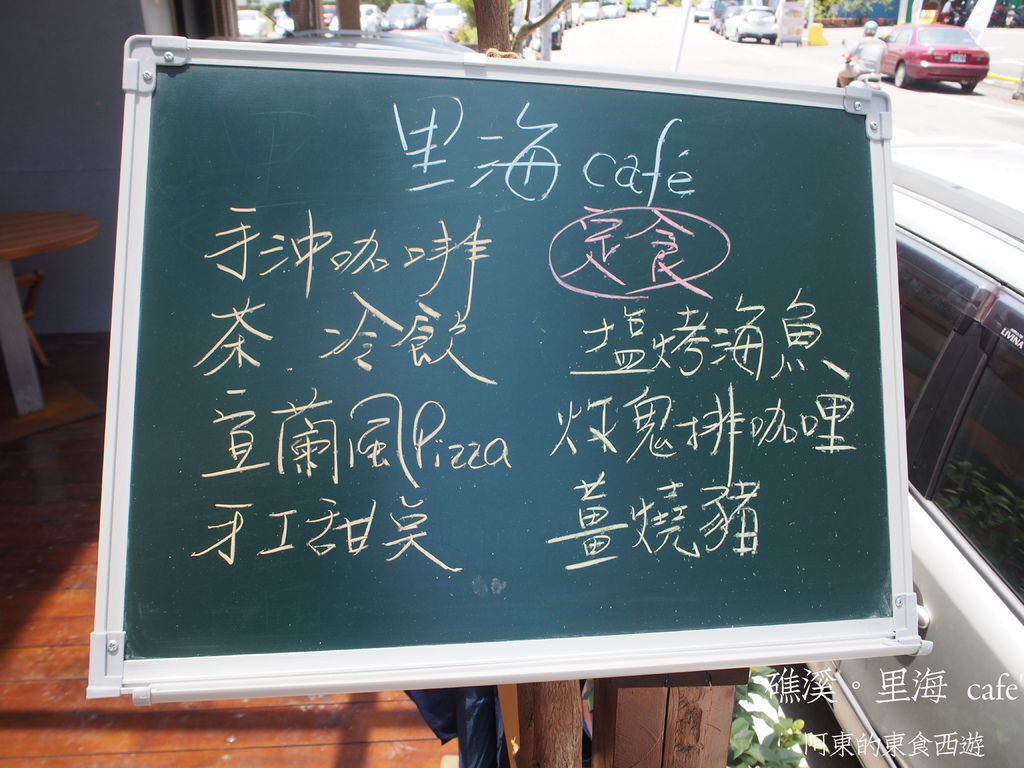 里海 café
手沖咖啡
茶 冷飲
宜蘭風Pizza
手工甜点
定食
塩烤海魚
炸鬼排咖哩
薑燒豬
LIVINA
礁溪。里海 cafe'
阿東的東食西遊